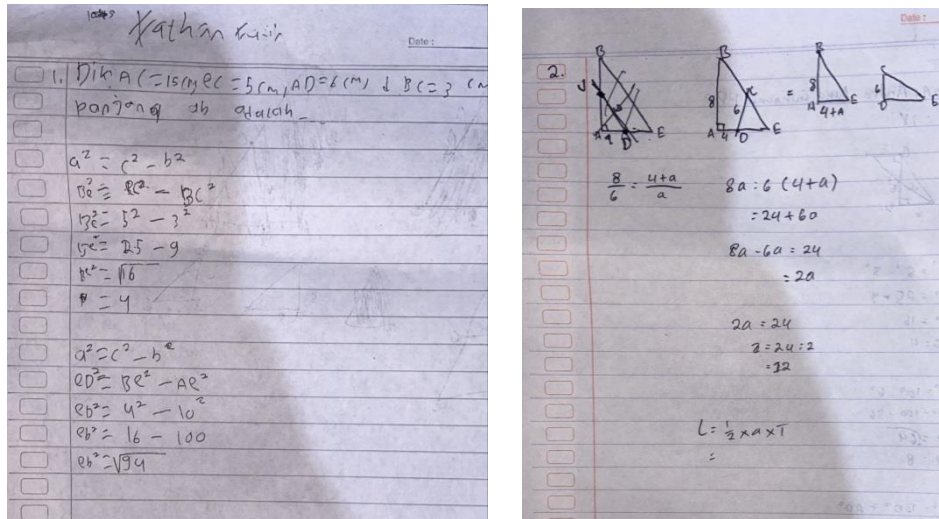 Date:
1. Dik AC=15cm, eC=5cm, AD=6cm, d BC=3 cm
panjang ab adalah
a² = c² - b²
Be² = eC² - BC²
Be² = 5² - 3²
Be² = 25 - 9
Be² = √16
= 4
a² = c² - b²
eD² = Be² - Ae²
eb² = 4² - 10²
eb² = 16 - 100
eb² = √94
Date:
2.
B
A 4 D E
B
8 6 C
A 4 D E
=
B
8
A 4+A E
C
6
D E
8/6 = 4+a/a
8a = 6 (4+a)
= 24 + 6a
8a - 6a = 24
= 2a
2a = 24
a = 24 : 2
= 12
L = 1/2 x a x T
=